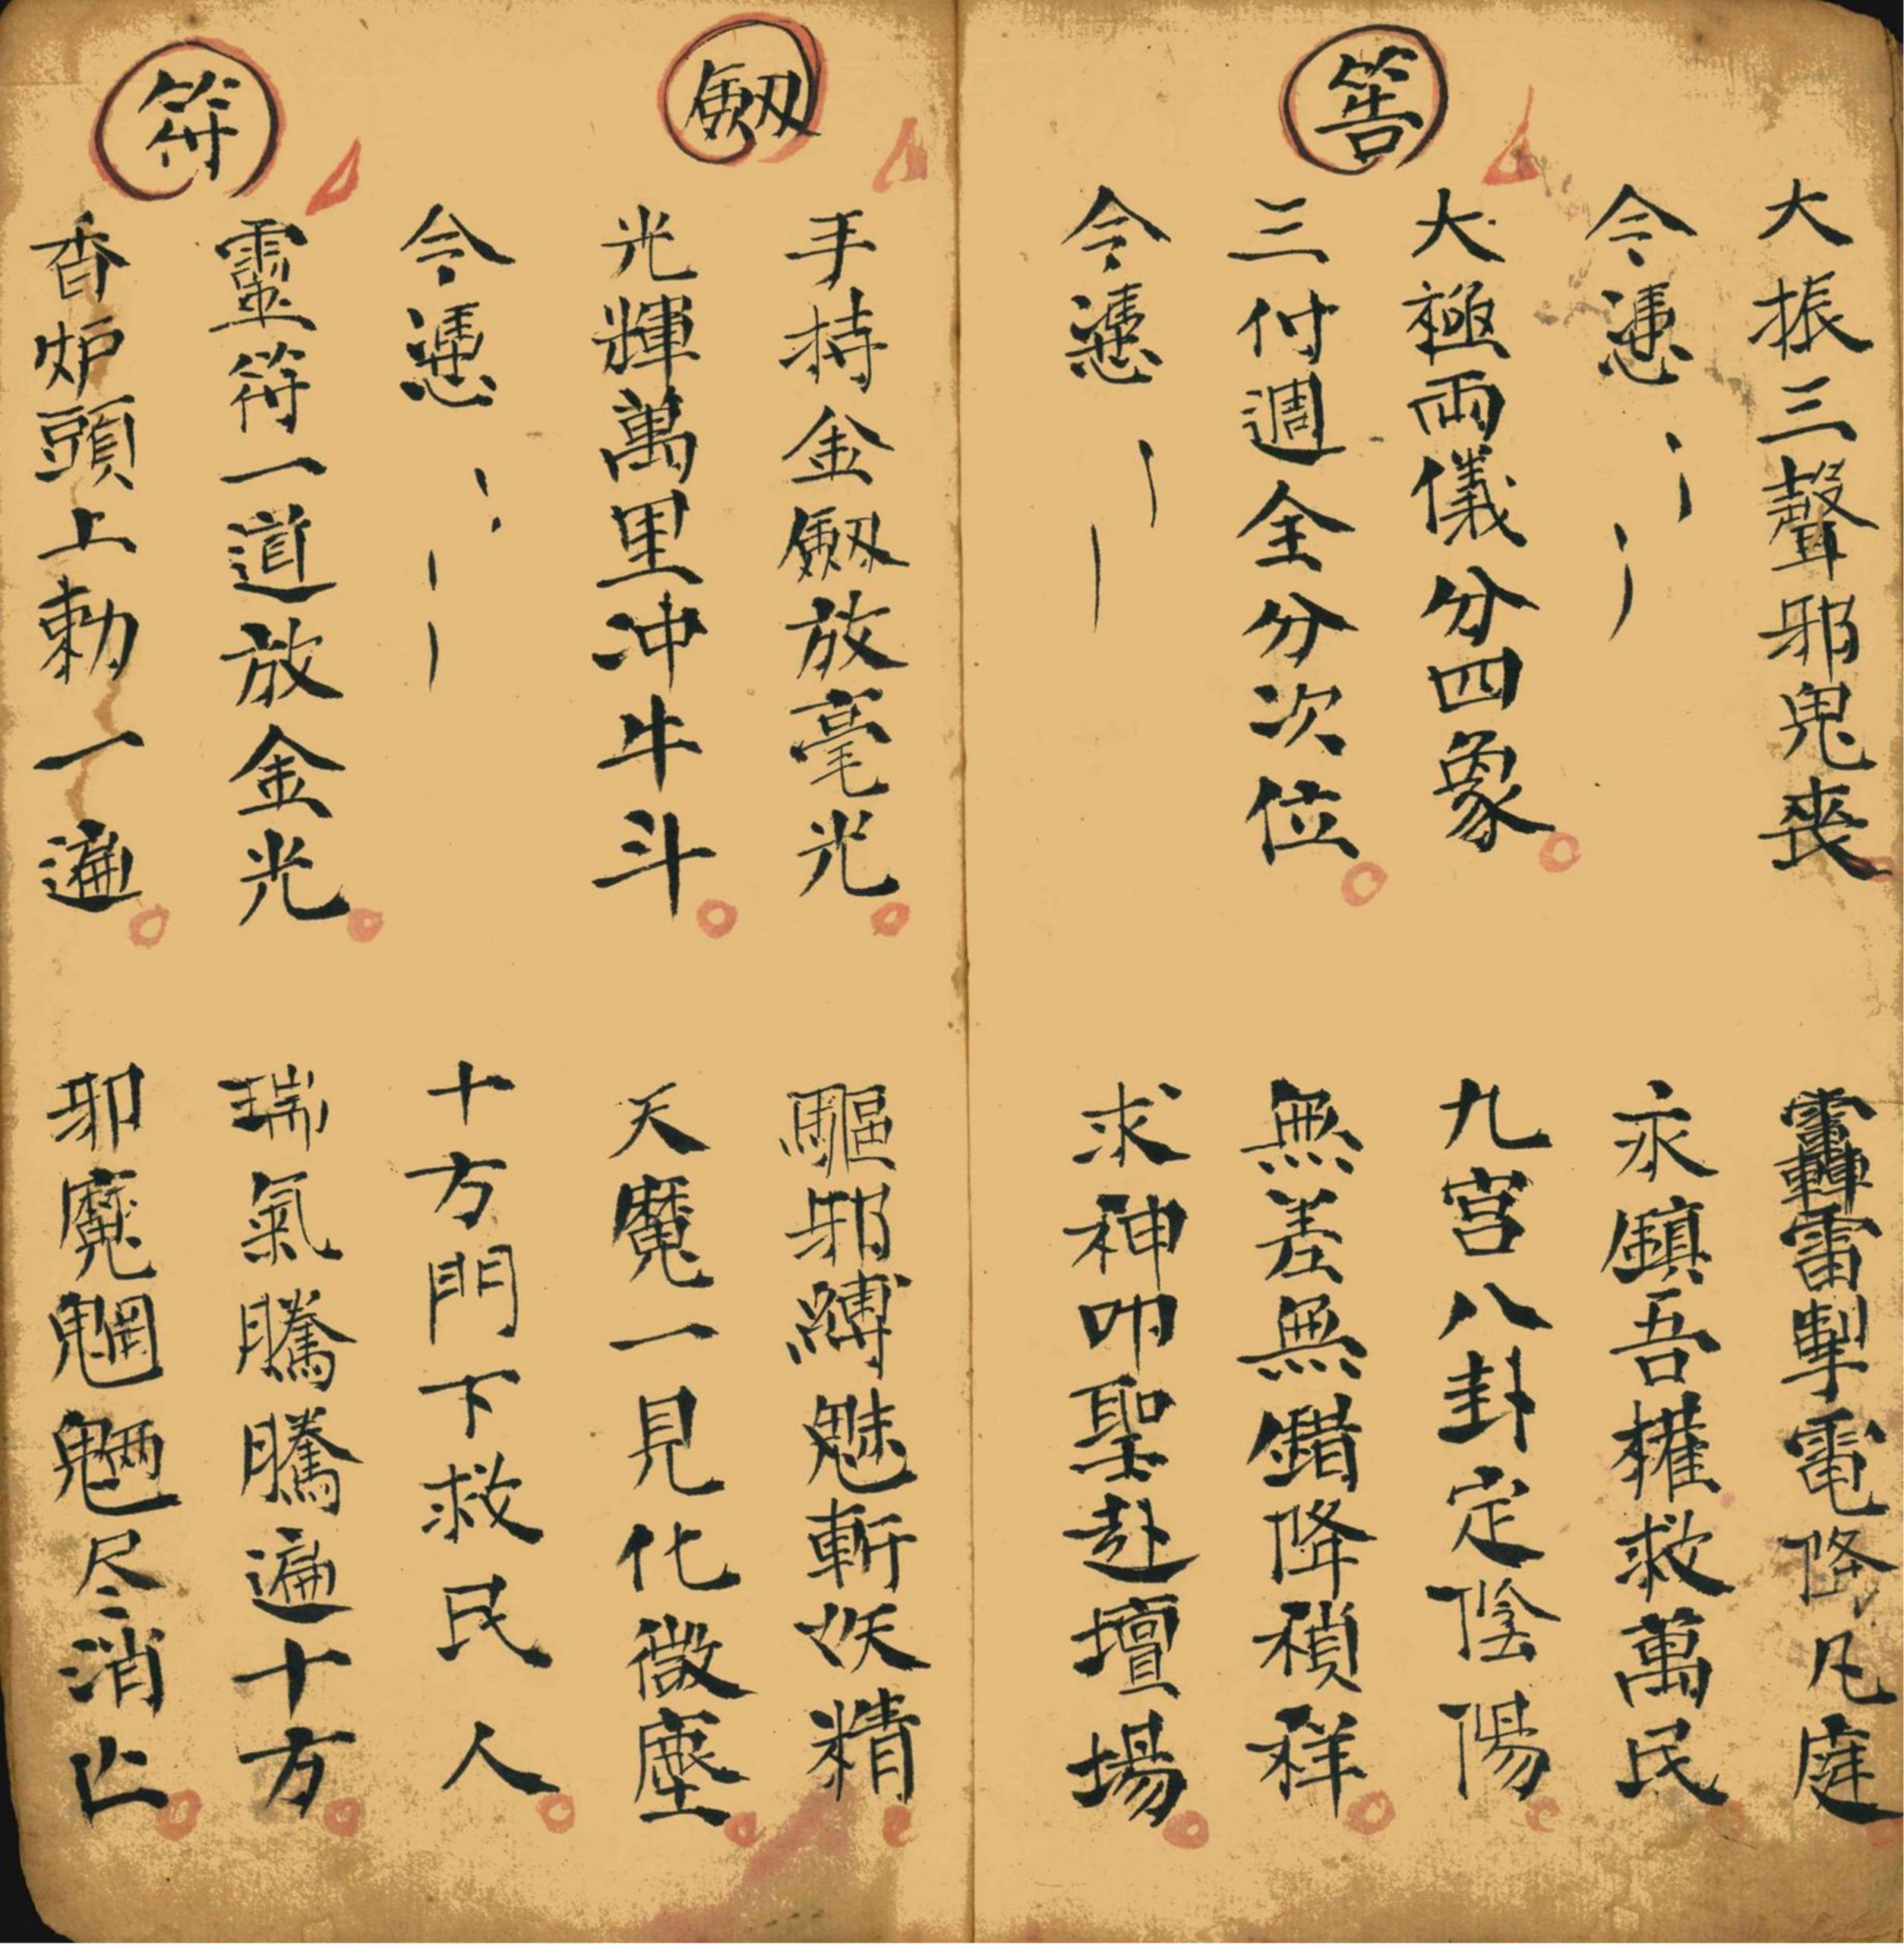 大振三聲邪鬼丧
轟雷掣電降凡庭
今憑
永鎮吾權救萬民
筶
大極両儀分四象
九宮八卦定陰陽
三付週全分次位
無差無錯降禎祥
今憑
求神叩聖赴壇場
劔
手持金劔放毫光
驅邪縛魅斬妖精
光輝萬里冲牛斗
天魔一見化微塵
今憑
十方門下救民人
符
靈符一道放金光
瑞氣騰騰遍十方
香炉頭上勅一遍
邪魔魍魎尽消亡